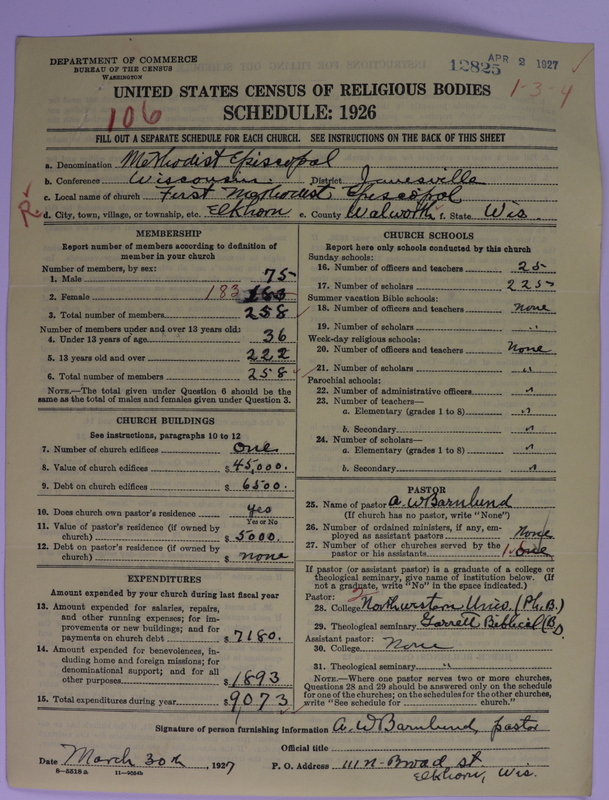 DEPARTMENT OF COMMERCE
BUREAU OF THE CENSUS
WASHINGTON
12825 APR 2 1927
UNITED STATES CENSUS OF RELIGIOUS BODIES
1-3-4
106
SCHEDULE: 1926
FILL OUT A SEPARATE SCHEDULE FOR EACH CHURCH. SEE INSTRUCTIONS ON THE BACK OF THIS SHEET
a. Denomination Methodist Episcopal
b. Conference Wisconsin District Janesville
c. Local name of church First Methodist Episcopal
R d. City, town, village, or township, etc. Elkhorn e. County Walworth f. State Wis.
MEMBERSHIP
Report number of members according to definition of
member in your church
Number of members, by sex:
1. Male 75
2. Female 183 183
3. Total number of members 258
Number of members under and over 13 years old:
4. Under 13 years of age 36
5. 13 years old and over 222
6. Total number of members 258
NOTE.—The total given under Question 6 should be the
same as the total of males and females given under Question 3.
CHURCH BUILDINGS
See instructions, paragraphs 10 to 12
7. Number of church edifices One
8. Value of church edifices $45,000.
9. Debt on church edifices $6500
10. Does church own pastor's residence yes
Yes or No
11. Value of pastor's residence (if owned by
church) $5000.
12. Debt on pastor's residence (if owned by
church) $none
EXPENDITURES
Amount expended by your church during last fiscal year
13. Amount expended for salaries, repairs,
and other running expenses; for im-
provements or new buildings; and for
payments on church debt $7180.
14. Amount expended for benevolences, in-
cluding home and foreign missions; for
denominational support; and for all
other purposes $1893
15. Total expenditures during year $9,073
CHURCH SCHOOLS
Report here only schools conducted by this church
Sunday schools:
16. Number of officers and teachers 25
17. Number of scholars 225
Summer vacation Bible schools:
18. Number of officers and teachers none
19. Number of scholars "
Week-day religious schools:
20. Number of officers and teachers None
21. Number of scholars "
Parochial schools:
22. Number of administrative officers "
23. Number of teachers—
a. Elementary (grades 1 to 8) "
b. Secondary "
24. Number of scholars—
a. Elementary (grades 1 to 8) "
b. Secondary "
PASTOR
25. Name of pastor A. W Barnlund
(If church has no pastor, write "None")
26. Number of ordained ministers, if any, em-
ployed as assistant pastors None
27. Number of other churches served by the
pastor or his assistants One
If pastor (or assistant pastor) is a graduate of a college or
theological seminary, give name of institution below. (If
not a graduate, write "No" in the space indicated.)
Pastor: 2
28. College Northwestern Univ. (Ph.B.)
29. Theological seminary Garrett Biblical (B.D.
Assistant pastor:
30. College None
31. Theological seminary "
NOTE.—Where one pastor serves two or more churches,
Questions 28 and 29 should be answered only on the schedule
for one of the churches; on the schedules for the other churches,
write "See schedule for church."
Signature of person furnishing information A. W Barnlund, pastor
Official title
Date March 30th, 1927 P. O. Address 111 N- Broad st
8-5518 a 11-9554b Elkhorn, Wis.